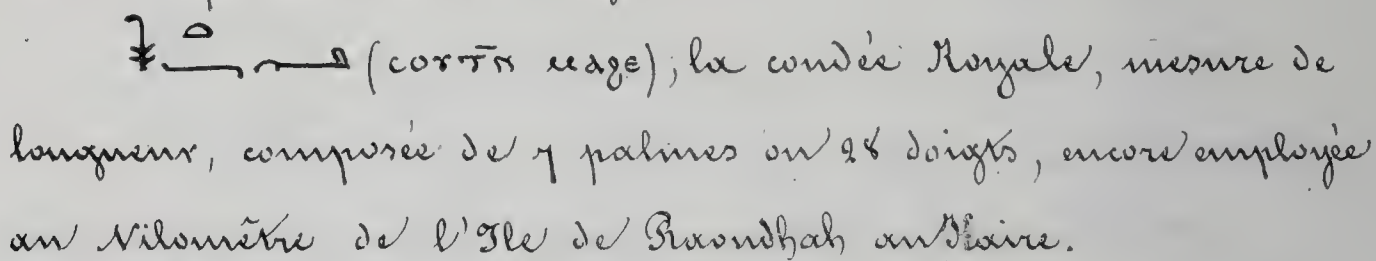 (ⲥⲟⲩⲧⲛ̄ ⲙⲁϩⲉ), la coudée Royale, mesure de
longueur, composée de 7 palmes ou 28 doigts, encore employée
au Nilomètre de l'Ile de Raoudhah au Kaire.